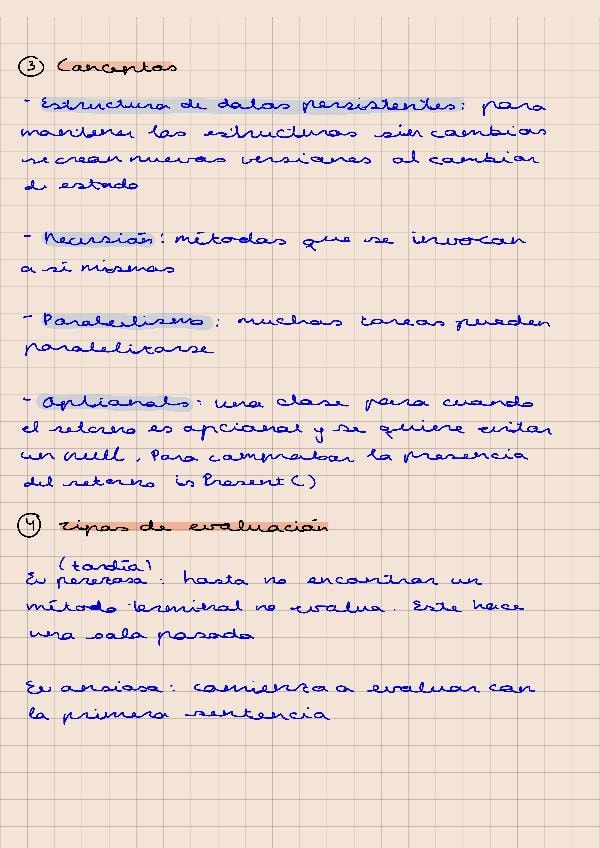 ③ Conceptos
- Estructura de datos persistentes: para
mantener las estructuras sin cambios
se crean nuevas versiones al cambiar
de estado
- Recursión: métodos que se invocan
a si mismos
- Paralelismo: muchas tareas pueden
paralelizarse
- Optionals: una clase para cuando
el retorno es opcional y se quiere evitar
un null. Para comprobar la presencia
del retorno is Present()
④ Tipos de evaluación
(tardía)
Ev perezosa: hasta no encontrar un
método terminal no evalua. Este hace
una sola pasada
Ev ansiosa: comienza a evaluar con
la primera sentencia